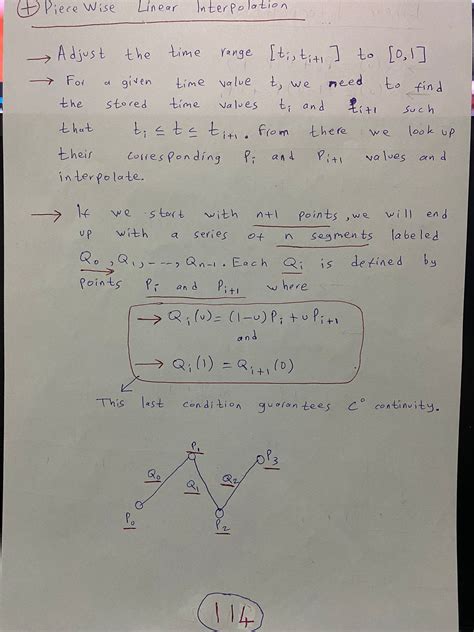 + Piece Wise Linear Interpolation
→ Adjust the time range [ti, ti+1] to [0,1]
→ For a given time value t, we need to find
the stored time values ti and ti+1 such
that ti ≤ t ≤ ti+1. From there we look up
their corresponding Pi and Pi+1 values and
interpolate.
→ If we start with n+1 points, we will end
up with a series of n segments labeled
Q0, Q1, ---, Qn-1. Each Qi is defined by
points Pi and Pi+1 where
→ Qi(u) = (1-u)Pi + u Pi+1
and
→ Qi(1) = Qi+1(0)
This last condition guarantees C° continuity.
P1
P3
Q0
Q1
Q2
P0
P2
114